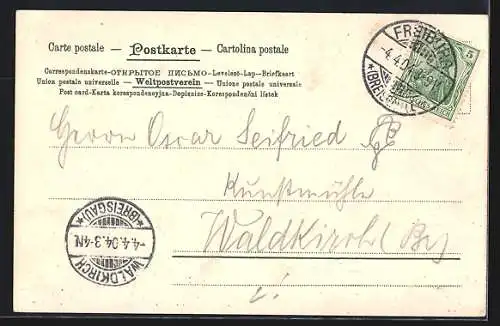 Carte postale — Postkarte — Cartolina postale
Correspondenzkarte-ОТКРЫТОЕ ПИСЬМО-Levelező-Lap-Briefkaart
Union postale universelle — Weltpostverein — Unione postale universale
Post card-Karta korespondencyjna-Dopisnice-Korespondenční lístek
FREIBURG
4.4.04
(BREISGAU)
5
Herrn Oscar Seifried
Kunstmühle
Waldkirch (Br)
WALDKIRCH
-4.4.04.3-4N.
*(BREISGAU)*